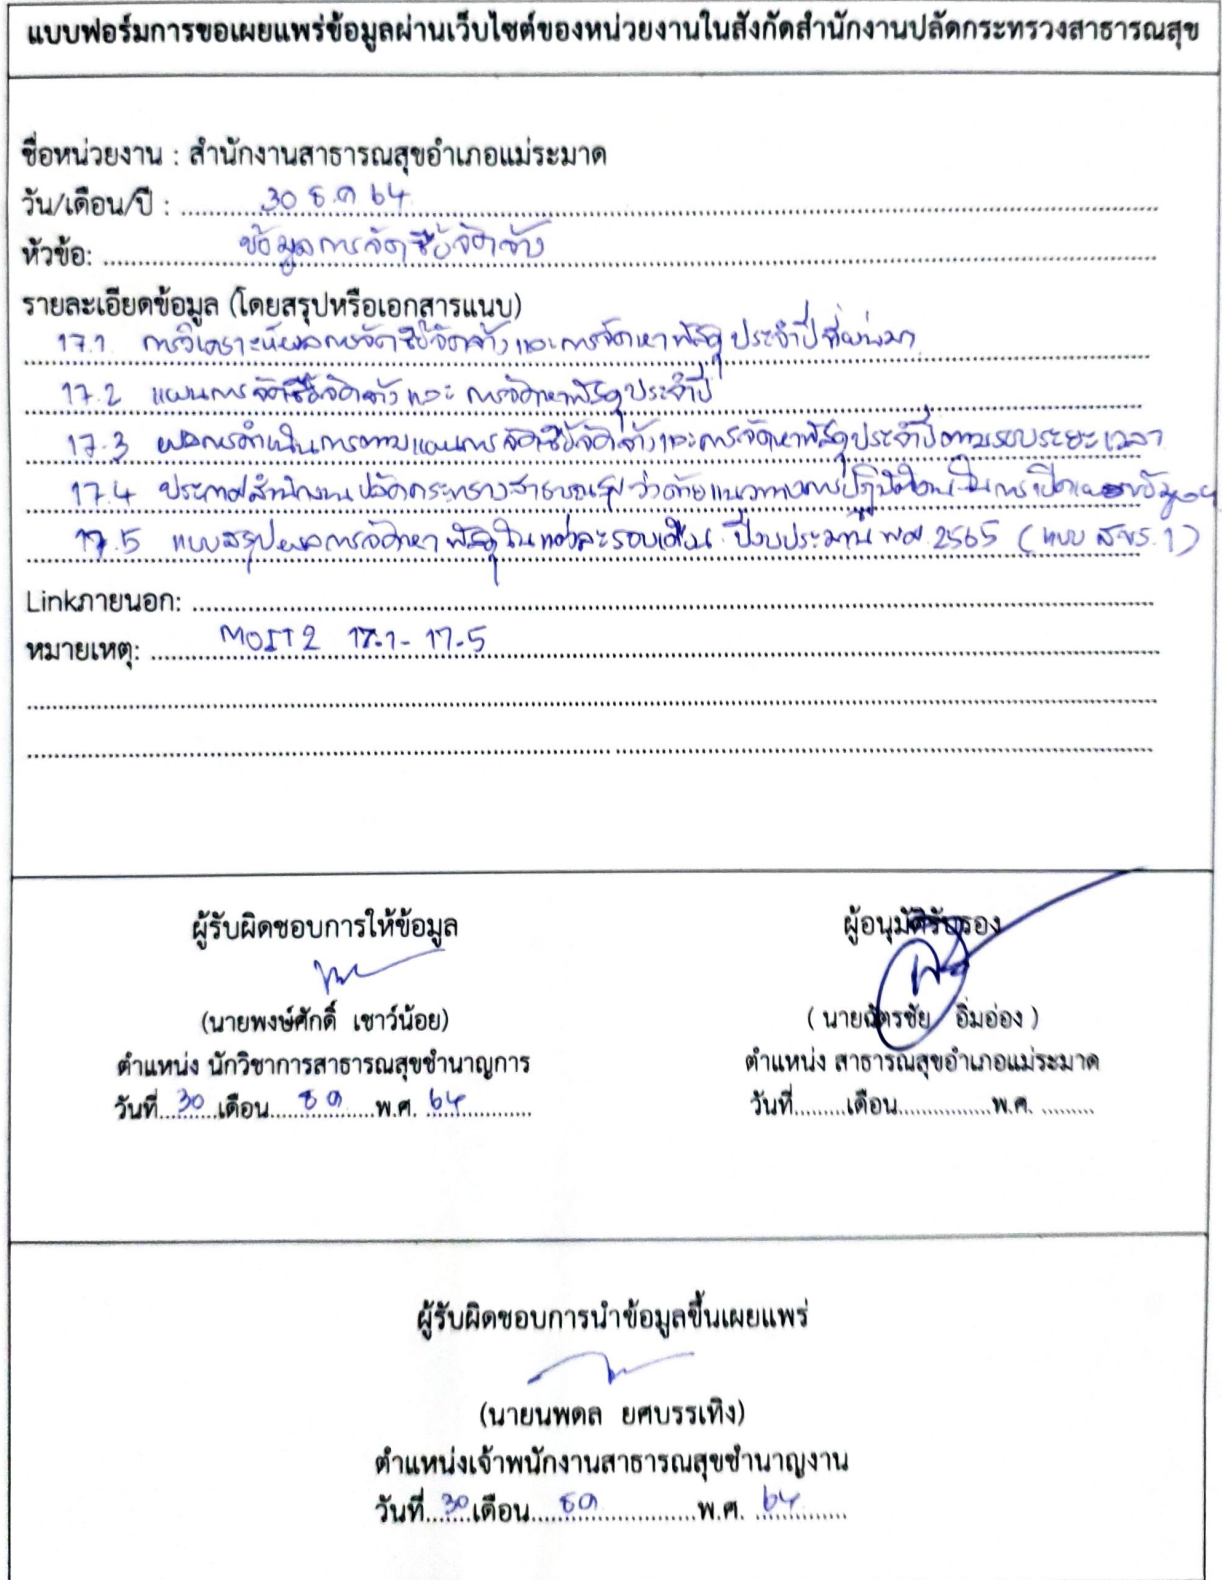 แบบฟอร์มการขอเผยแพร่ข้อมูลผ่านเว็บไซต์ของหน่วยงานในสังกัดสำนักงานปลัดกระทรวงสาธารณสุข
ชื่อหน่วยงาน : สำนักงานสาธารณสุขอำเภอแม่ระมาด
วัน/เดือน/ปี : 30 ธ.ค 64
หัวข้อ: ข้อมูลการจัดซื้อจัดจ้าง
รายละเอียดข้อมูล (โดยสรุปหรือเอกสารแนบ)
17.1 การวิเคราะห์ผลการจัดซื้อจัดจ้าง และการจัดหาพัสดุ ประจำปี ที่ผ่านมา
17.2 แผนการจัดซื้อจัดจ้าง และ การจัดหาพัสดุประจำปี
17.3 ผลการดำเนินการตามแผนการจัดซื้อจัดจ้าง และการจัดหาพัสดุประจำปีตามรอบระยะเวลา
17.4 ประกาศสำนักงานปลัดกระทรวงสาธารณสุข ว่าด้วยแนวทางการปฏิบัติงานในการเปิดเผยข้อมูล
17.5 แบบสรุปผลการจัดหาพัสดุในแต่ละรอบเดือน ปีงบประมาณ พศ. 2565 (แบบ สขร. 1)
Linkภายนอก:
หมายเหตุ: MOIT2 17.1- 17.5
ผู้รับผิดชอบการให้ข้อมูล
(นายพงษ์ศักดิ์ เชาว์น้อย)
ตำแหน่ง นักวิชาการสาธารณสุขชำนาญการ
วันที่ 30 เดือน ธค พ.ศ. 64
ผู้อนุมัติรับรอง
( นายฉัตรชัย อิ่มอ่อง )
ตำแหน่ง สาธารณสุขอำเภอแม่ระมาด
วันที่.........เดือน................พ.ศ. .........
ผู้รับผิดชอบการนำข้อมูลขึ้นเผยแพร่
(นายนพดล ยศบรรเทิง)
ตำแหน่งเจ้าพนักงานสาธารณสุขชำนาญงาน
วันที่ 30 เดือน ธค พ.ศ. 64